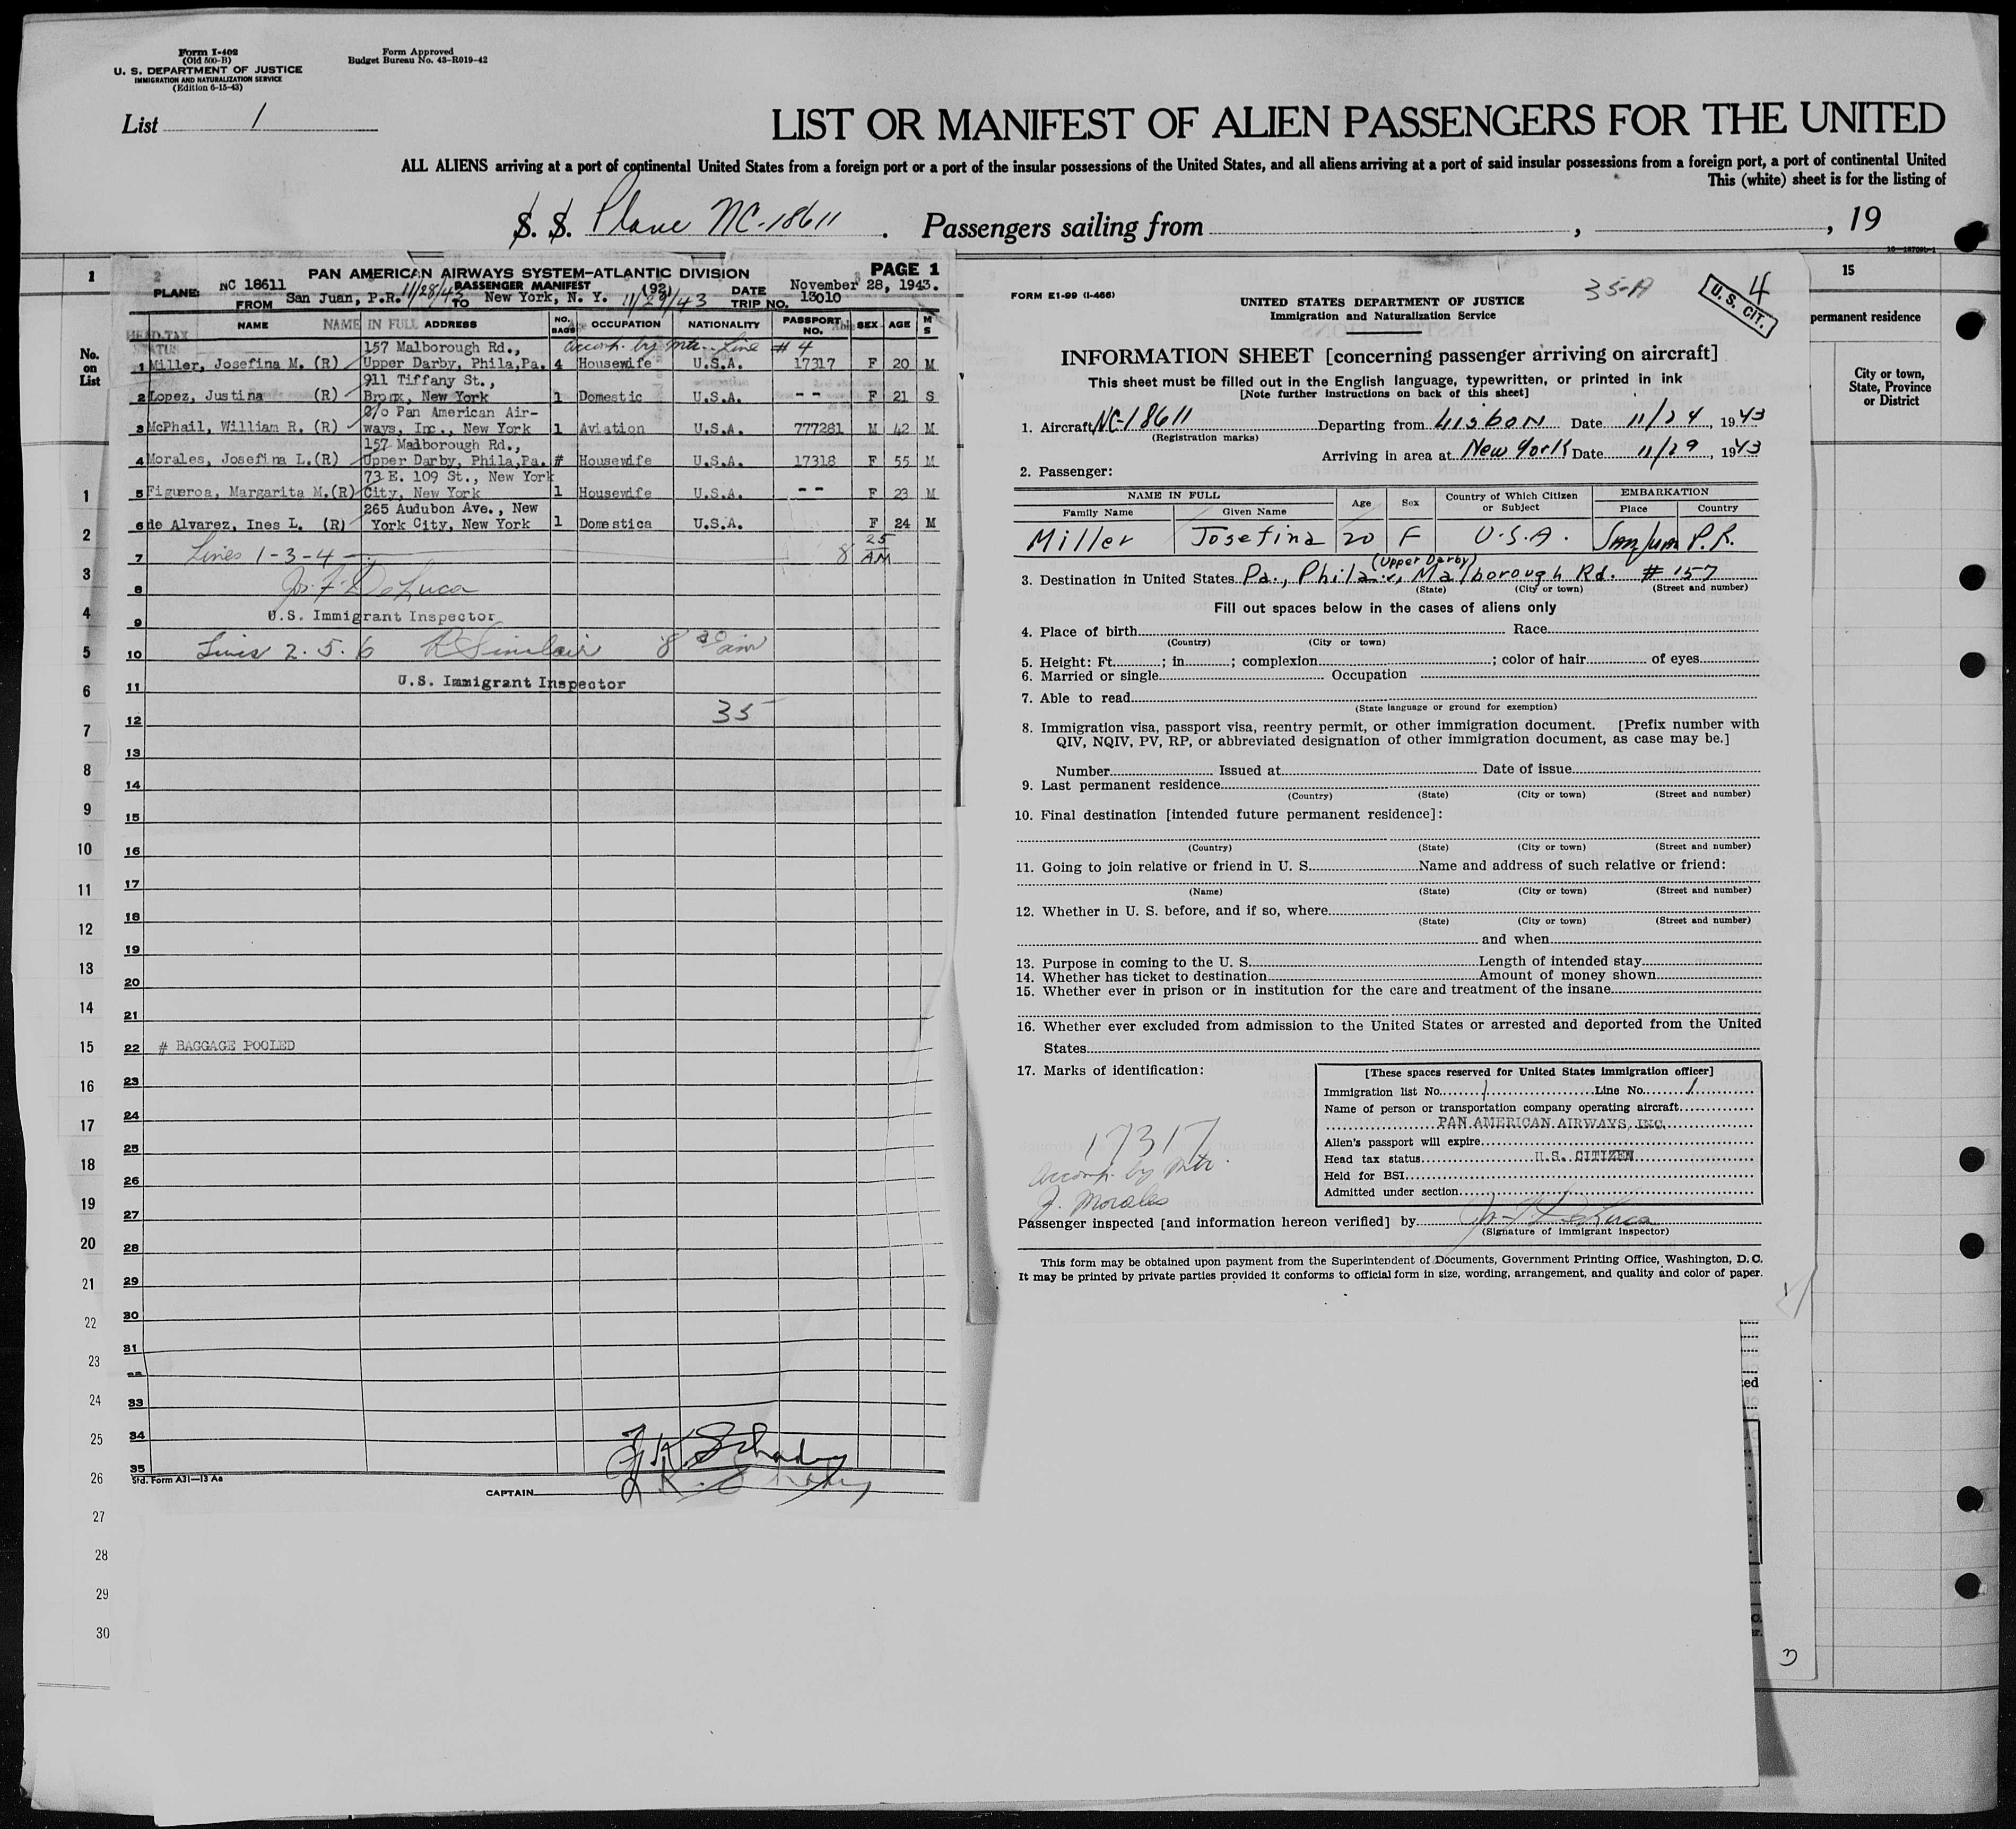 Form I-402
(Old 500-B)
U. S. DEPARTMENT OF JUSTICE
IMMIGRATION AND NATURALIZATION SERVICE
(Edition 6-15-43)
Form Approved
Budget Bureau No. 43-R019-42
List 1
LIST OR MANIFEST OF ALIEN PASSENGERS FOR THE UNITED
ALL ALIENS arriving at a port of continental United States from a foreign port or a port of the insular possessions of the United States, and all aliens arriving at a port of said insular possessions from a foreign port, a port of continental United
This (white) sheet is for the listing of
S. S. Plane NC-18611. Passengers sailing from , , 19
1
No. on List
1
2
3
4
5
6
7
8
9
10
11
12
13
14
15
16
17
18
19
20
21
22
23
24
25
26
27
28
29
30
PAN AMERICAN AIRWAYS SYSTEM-ATLANTIC DIVISION PAGE 1
PLANE: NC 18611 PASSENGER MANIFEST (92) DATE November 28, 1943.
FROM San Juan, P.R. 11/28/43 TO New York, N. Y. 11/29/43 TRIP NO. 13010
NAME ADDRESS NO. BAGS OCCUPATION NATIONALITY PASSPORT NO. SEX AGE M S
NAME IN FULL
HEAD-TAX STATUS
157 Malborough Rd., Accomp. by Mtr. - Line #4
1 Miller, Josefina M. (R) Upper Darby, Phila,Pa. 4 Housewife U.S.A. 17317 F 20 M
911 Tiffany St.,
2 Lopez, Justina (R) Bronx, New York 1 Domestic U.S.A. - - F 21 S
c/o Pan American Air-
3 McPhail, William R. (R) ways, Inc., New York 1 Aviation U.S.A. 777281 M 42 M
157 Malborough Rd.,
4 Morales, Josefina L.(R) Upper Darby, Phila,Pa. # Housewife U.S.A. 17318 F 55 M
73 E. 109 St., New York
5 Figueroa, Margarita M.(R) City, New York 1 Housewife U.S.A. - - F 23 M
265 Audubon Ave., New
6 de Alvarez, Ines L. (R) York City, New York 1 Domestica U.S.A. F 24 M
7 Lines 1-3-4 8 25 AM
8 Jos. F. DeLuca
9 U.S. Immigrant Inspector
10 Lines 2. 5. 6 R Sinclair 8 30 am
11 U.S. Immigrant Inspector
12 35
13
14
15
16
17
18
19
20
21
22 # BAGGAGE POOLED
23
24
25
26
27
28
29
30
31
32
33
34
35
Std. Form A31-13 Aa
CAPTAIN
FORM E1-99 (I-466)
35-A
4
U. S. CIT.
UNITED STATES DEPARTMENT OF JUSTICE
Immigration and Naturalization Service
INFORMATION SHEET [concerning passenger arriving on aircraft]
This sheet must be filled out in the English language, typewritten, or printed in ink
[Note further instructions on back of this sheet]
1. Aircraft NC-18611 Departing from Lisbon Date 11/24, 1943
(Registration marks)
Arriving in area at New York Date 11/29, 1943
2. Passenger:
NAME IN FULL Age Sex Country of Which Citizen or Subject EMBARKATION
Family Name Given Name Place Country
Miller Josefina 20 F U.S.A. San Juan P.R.
(Upper Darby)
3. Destination in United States Pa., Phila., Malborough Rd. # 157
(State) (City or town) (Street and number)
Fill out spaces below in the cases of aliens only
4. Place of birth Race
(Country) (City or town)
5. Height: Ft. ; in. ; complexion ; color of hair of eyes
6. Married or single Occupation
7. Able to read
(State language or ground for exemption)
8. Immigration visa, passport visa, reentry permit, or other immigration document. [Prefix number with
QIV, NQIV, PV, RP, or abbreviated designation of other immigration document, as case may be.]
Number Issued at Date of issue
9. Last permanent residence
(Country) (State) (City or town) (Street and number)
10. Final destination [intended future permanent residence]:
(Country) (State) (City or town) (Street and number)
11. Going to join relative or friend in U. S. Name and address of such relative or friend:
(Name) (State) (City or town) (Street and number)
12. Whether in U. S. before, and if so, where
(State) (City or town) (Street and number)
and when
13. Purpose in coming to the U. S. Length of intended stay
14. Whether has ticket to destination Amount of money shown
15. Whether ever in prison or in institution for the care and treatment of the insane
16. Whether ever excluded from admission to the United States or arrested and deported from the United
States
17. Marks of identification:
17317
Accomp. by Mtr.
J. Morales
[These spaces reserved for United States immigration officer]
Immigration list No. 1 Line No. 1
Name of person or transportation company operating aircraft
PAN AMERICAN AIRWAYS, INC.
Alien's passport will expire
Head tax status U.S. CITIZEN
Held for BSI
Admitted under section
Passenger inspected [and information hereon verified] by Jos. F. DeLuca
(Signature of immigrant inspector)
This form may be obtained upon payment from the Superintendent of Documents, Government Printing Office, Washington, D. C.
It may be printed by private parties provided it conforms to official form in size, wording, arrangement, and quality and color of paper.
15
permanent residence
City or town, State, Province or District